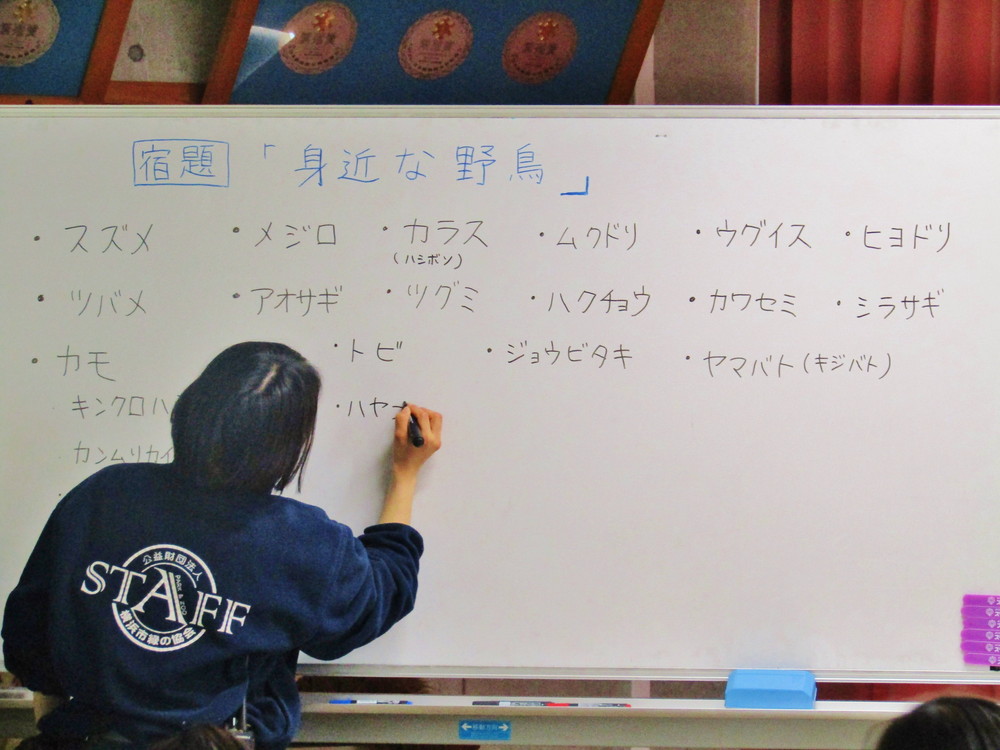 宿題 「身近な野鳥」
・スズメ ・メジロ ・カラス ・ムクドリ ・ウグイス ・ヒヨドリ
(ハシボソ)
・ツバメ ・アオサギ ・ツグミ ・ハクチョウ ・カワセミ ・シラサギ
・カモ ・トビ ・ジョウビタキ ・ヤマバト(キジバト)
キンクロハ ・ハヤ
カンムリカイ
公益財団法人
STAFF
PARK & ZOO
横浜市緑の協会